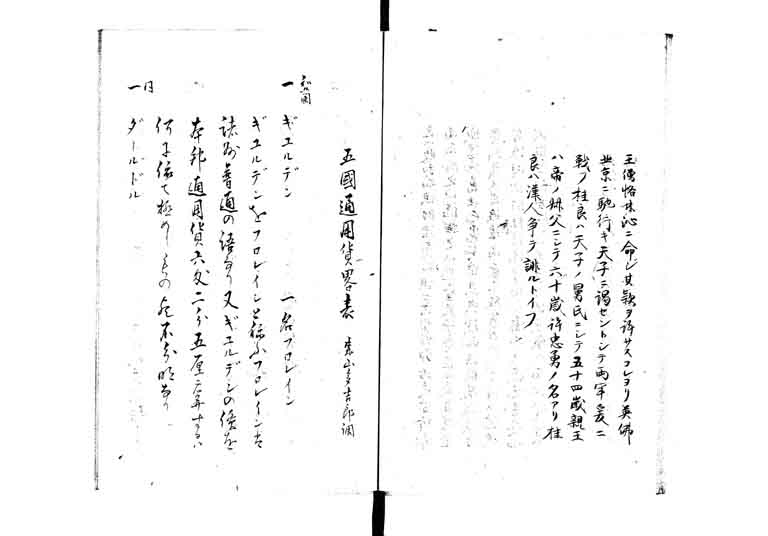 王僧格林沁ニ命シ其欵ヲ許サスコレヨリ英佛
北京ニ馳行キ天子ニ謁セントシテ両軍爰ニ
戦フ桂良ハ天子ノ舅氏ニシテ五十四歳親王
ハ帝ノ叔父ニシテ六十歳許忠勇ノ名アリ桂
良ハ漢人争テ誹ルトイフ
五國通用貨畧表
吉郎調
和蘭
一 ギユルデン 一名フロレイン
ギユルデンをフロレインと称ふフロレインは
普通の語なり又ギユルデンの價を
本邦通用貨六匁二分五厘
何に依て極めしもの歟不分明なり
同
一 ダールドル